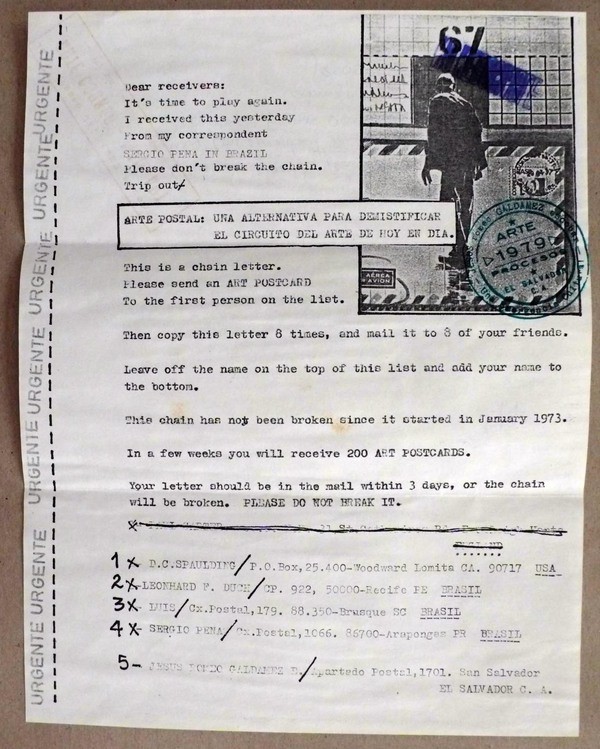 URGENTE URGENTE URGENTE URGENTE URGENTE URGENTE URGENTE
67
Dear receivers:
It's time to play again.
I received this yesterday
From my correspondent
SERGIO PENA IN BRAZIL
Please don't break the chain.
Trip out/
ARTE POSTAL: UNA ALTERNATIVA PARA DEMISTIFICAR
EL CIRCUITO DEL ARTE DE HOY EN DIA.
ARTE
1979
PROCESO
EL SALVADOR
AÉREA
AVION
This is a chain letter.
Please send an ART POSTCARD
To the first person on the list.
Then copy this letter 8 times, and mail it to 8 of your friends.
Leave off the name on the top of this list and add your name to
the bottom.
This chain has not been broken since it started in January 1973.
In a few weeks you will receive 200 ART POSTCARDS.
Your letter should be in the mail within 3 days, or the chain
will be broken. PLEASE DO NOT BREAK IT.
ENGLAND
1 X- D.C.SPAULDING/P.O.Box,25.400-Woodward Lomita CA. 90717 USA
2 X-LEONHARD F. DUCH/CP. 922, 50000-Recife PE BRASIL
3 X- LUIS/Cx.Postal,179. 88.350-Brusque SC BRASIL
4 X- SERGIO PENA/Cx.Postal,1066. 86700-Arapongas PR BRASIL
5- JESUS ROMEO GALDAMEZ E./Apartado Postal,1701. San Salvador
EL SALVADOR C. A.